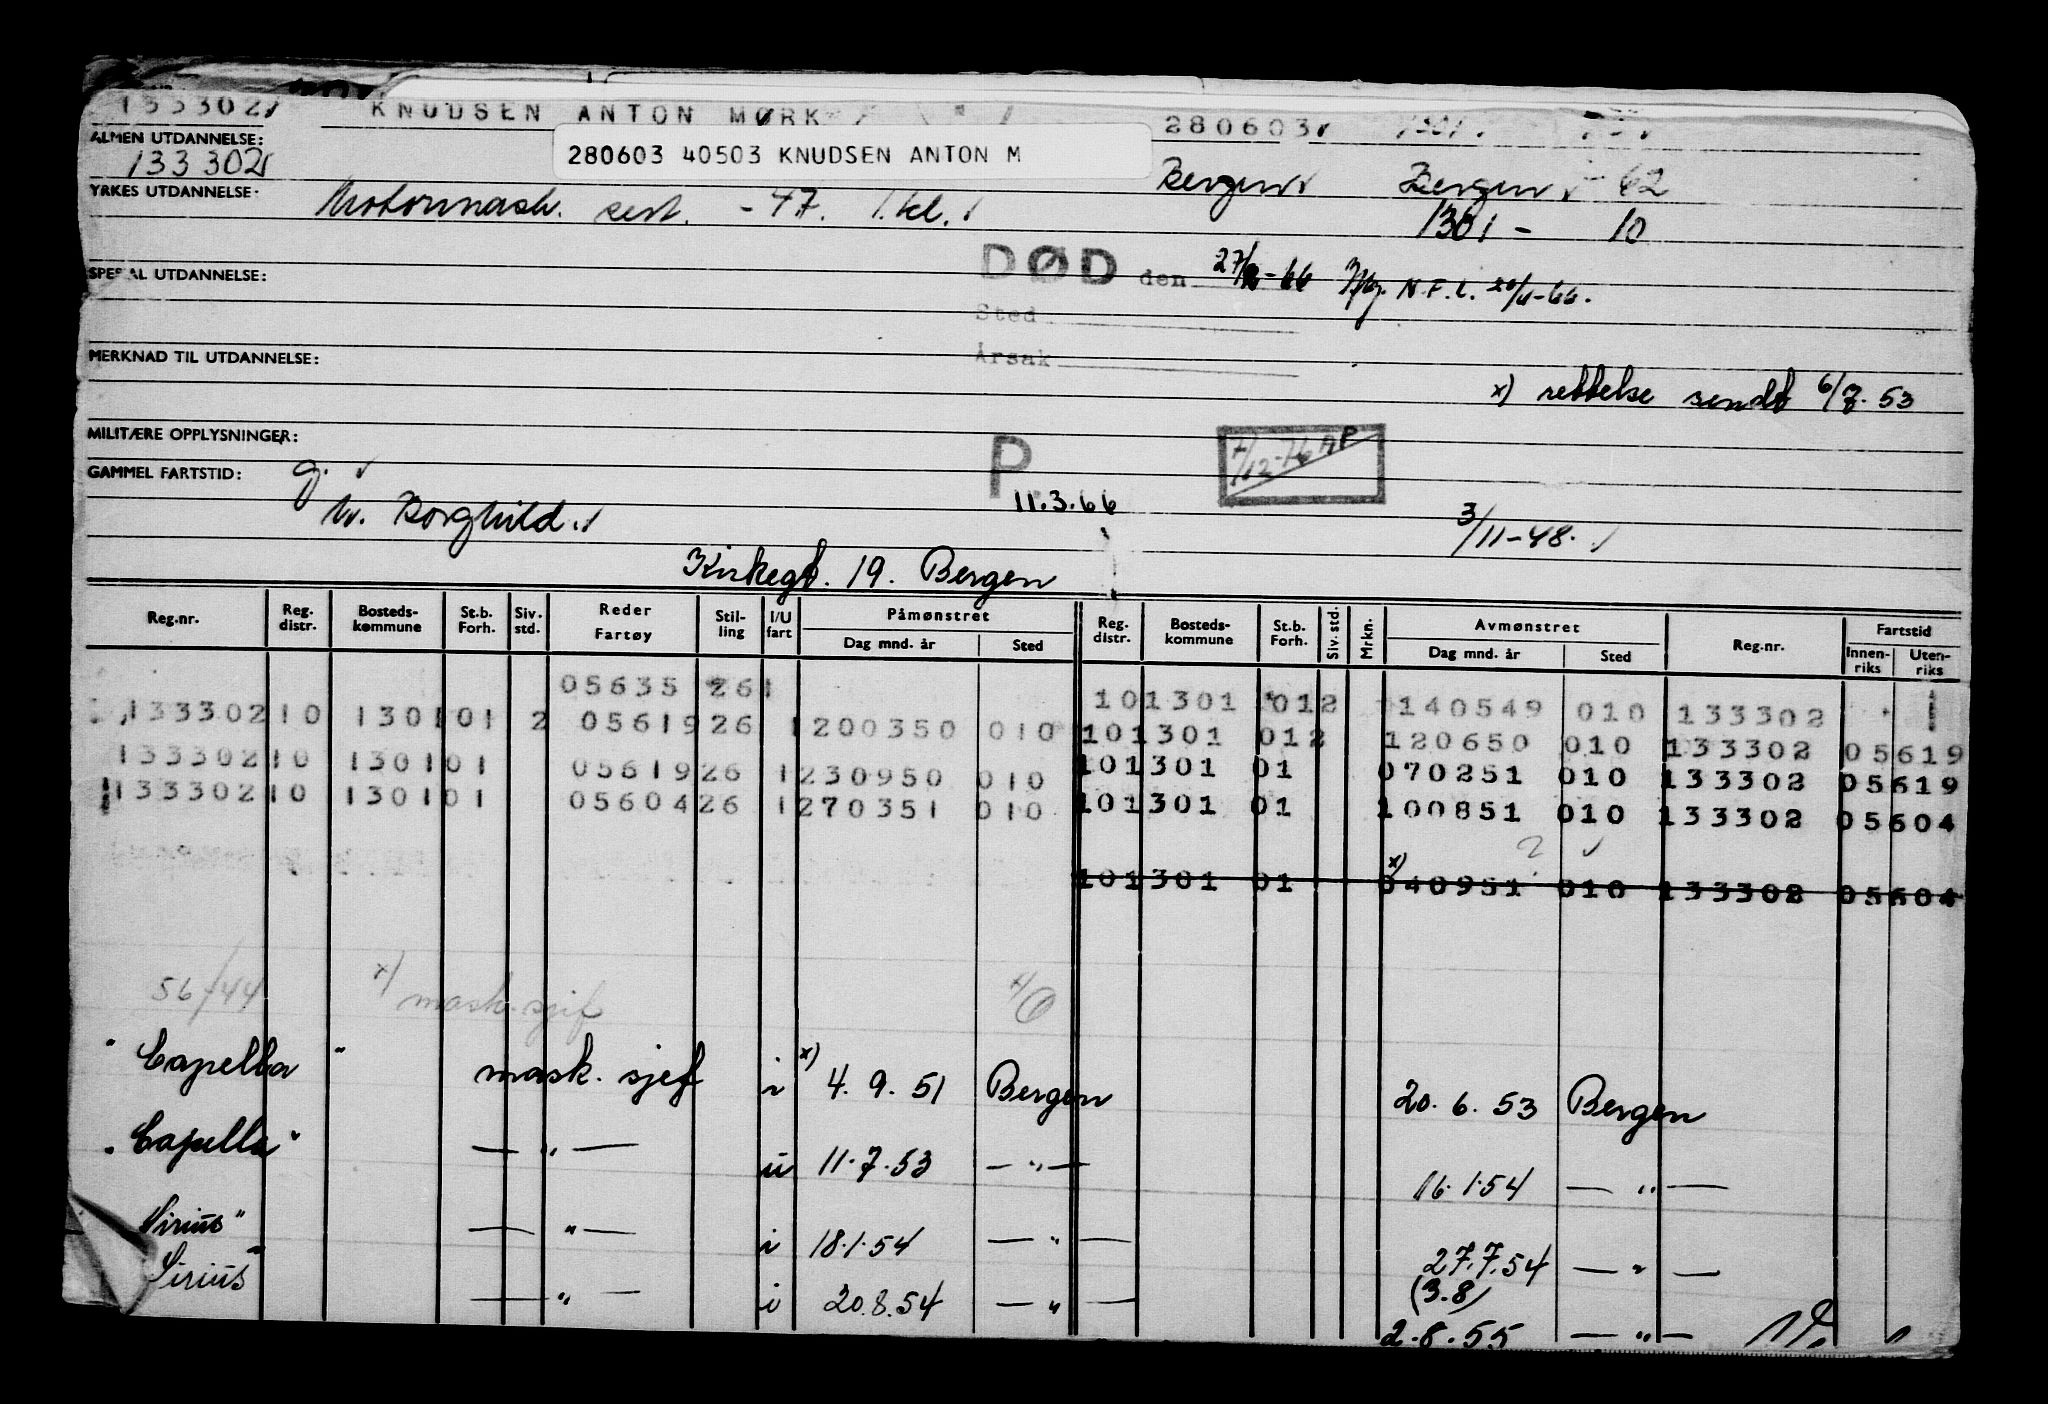 133302 KNUDSEN ANTON MØRK 280603
ALMEN UTDANNELSE:
133302 280603 40503 KNUDSEN ANTON M Bergen Bergen 62
YRKES UTDANNELSE: Motormask. sert. - 47. 1.kl. 1301 - 10
SPESIAL UTDANNELSE: DØD den 27/2-66 N.F.L.
Sted
Årsak
MERKNAD TIL UTDANNELSE:
x) rettelse sendt 6/7.53
MILITÆRE OPPLYSNINGER: P 7/12-76 AP
GAMMEL FARTSTID: g.
11.3.66
w. Borghild. 3/11-48.
Kirkegt. 19. Bergen
Reg.nr. Reg. distr. Bosteds-kommune St.b. Forh. Siv. std. Reder Fartøy Stil-ling I/U fart Påmønstret Dag mnd. år Sted Reg. distr. Bosteds-kommune St.b. Forh. Siv. std. Mrkn. Avmønstret Dag mnd. år Sted Reg.nr. Fartstid Innen-riks Uten-riks
05635 261 101301 012 140549 010 133302
133302 10 1301 01 2 05619 26 1 200350 010 101301 012 120650 010 133302 05619
133302 10 1301 01 05619 26 1 230950 010 101301 01 070251 010 133302 05619
133302 10 1301 01 05604 26 1 270351 010 101301 01 100851 010 133302 05604
x)
101301 01 040951 010 133302 05604
56/44 x) mask. sjef
"Capella" mask. sjef i x) 4.9.51 Bergen 20.6.53 Bergen
"Capella" — " — u 11.7.53 — " — 16.1.54 — " —
Sirius" — " — i 18.1.54 — " — 27.7.54 — " —
(3.8)
Sirius" — " — i 20.8.54 — " — 2.8.55 — " —